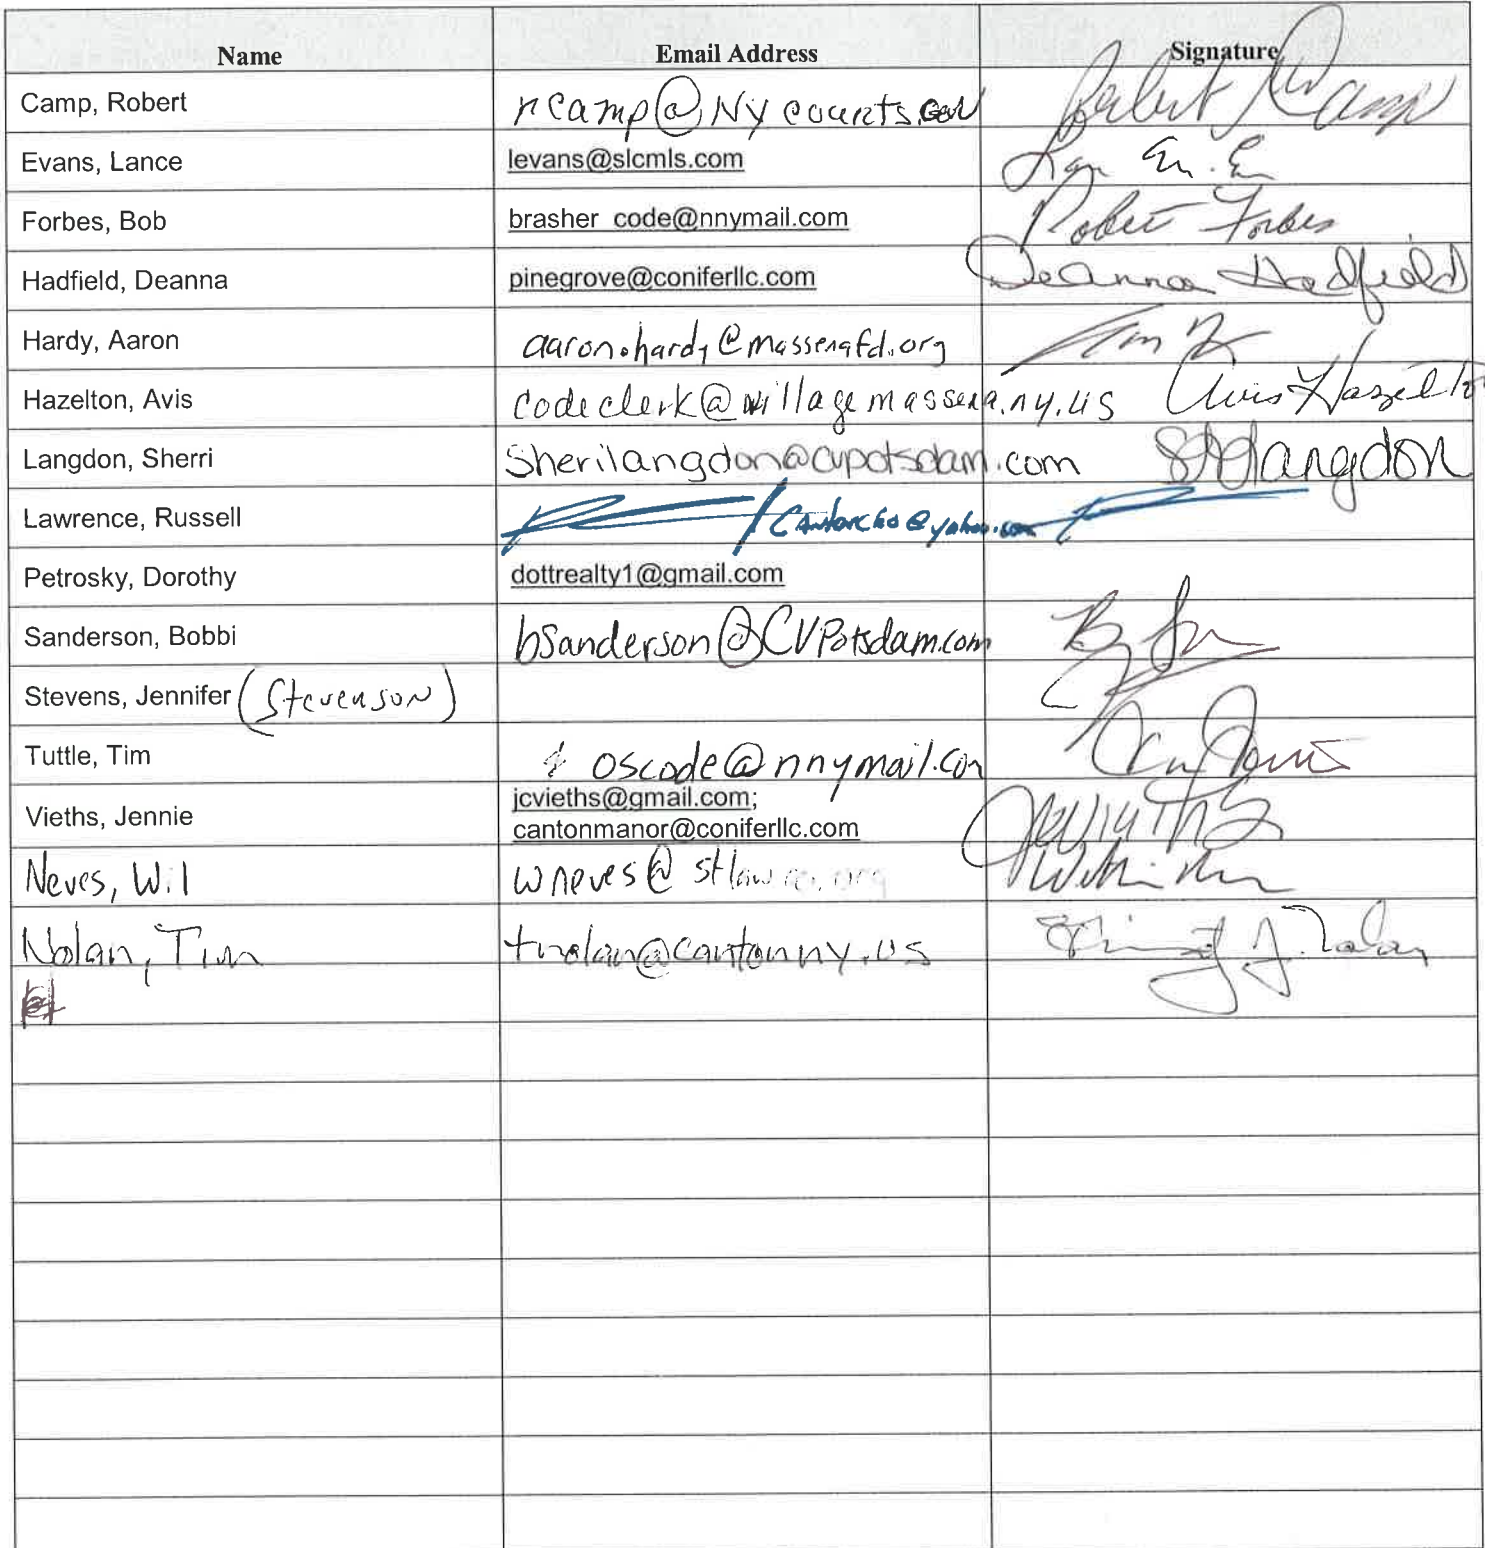 Name Email Address Signature
Camp, Robert rcamp@NYcourts.gov Robert W Camp
Evans, Lance levans@slcmls.com
Forbes, Bob brasher_code@nnymail.com Robert Forbes
Hadfield, Deanna pinegrove@coniferllc.com Deanna Hadfield
Hardy, Aaron aaron.hardy@massenafd.org
Hazelton, Avis codeclerk@village massena.ny.us Avis Hazelton
Langdon, Sherri Sherilangdon@cvpotsdam.com Langdon
Lawrence, Russell
Petrosky, Dorothy dottrealty1@gmail.com
Sanderson, Bobbi bsanderson@CVPotsdam.com
Stevens, Jennifer (Stevenson)
Tuttle, Tim oscode@nnymail.com
Vieths, Jennie jcvieths@gmail.com;
cantonmanor@coniferllc.com JCVieths
Neves, Wil wneves@
Nolan, Tim tnolan@cantonny.us Timothy J. Nolan